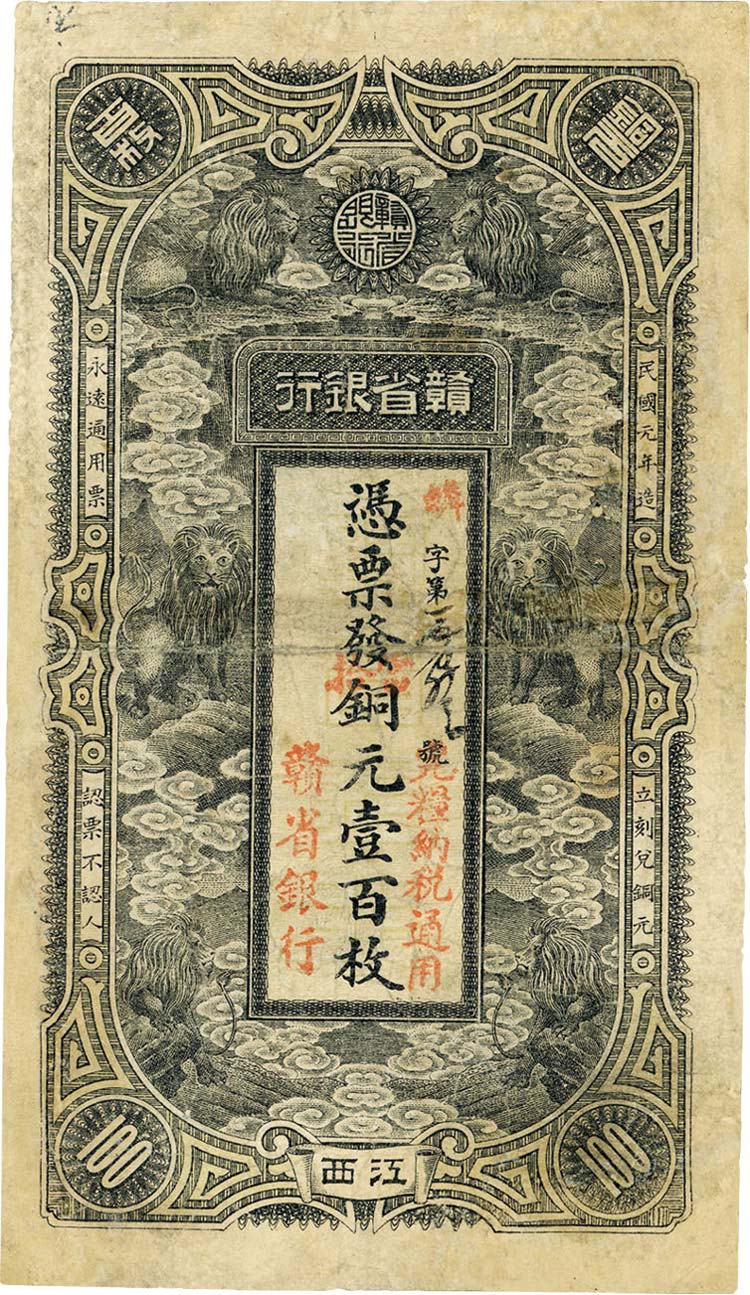 百枚
贛省銀行
贛省銀行
民國元年造
立刻兌銅元
字第
號
完糧納税通用
憑票發銅元壹百枚
贛省銀行
永遠通用票
認票不認人
100
江西
100